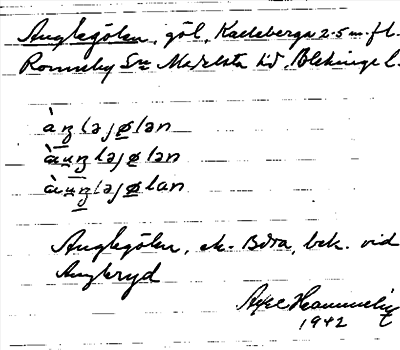 Anglegölen, göl, Karleberga 2-5 m.fl.
Ronneby Sn Medelsta hd, Blekinge l.
àŋləjølən
àuŋləjølən
àuŋləjølan
Anglegölen, ek. Böta, bek. vid
Angleryd
Axel Hammelin
1942